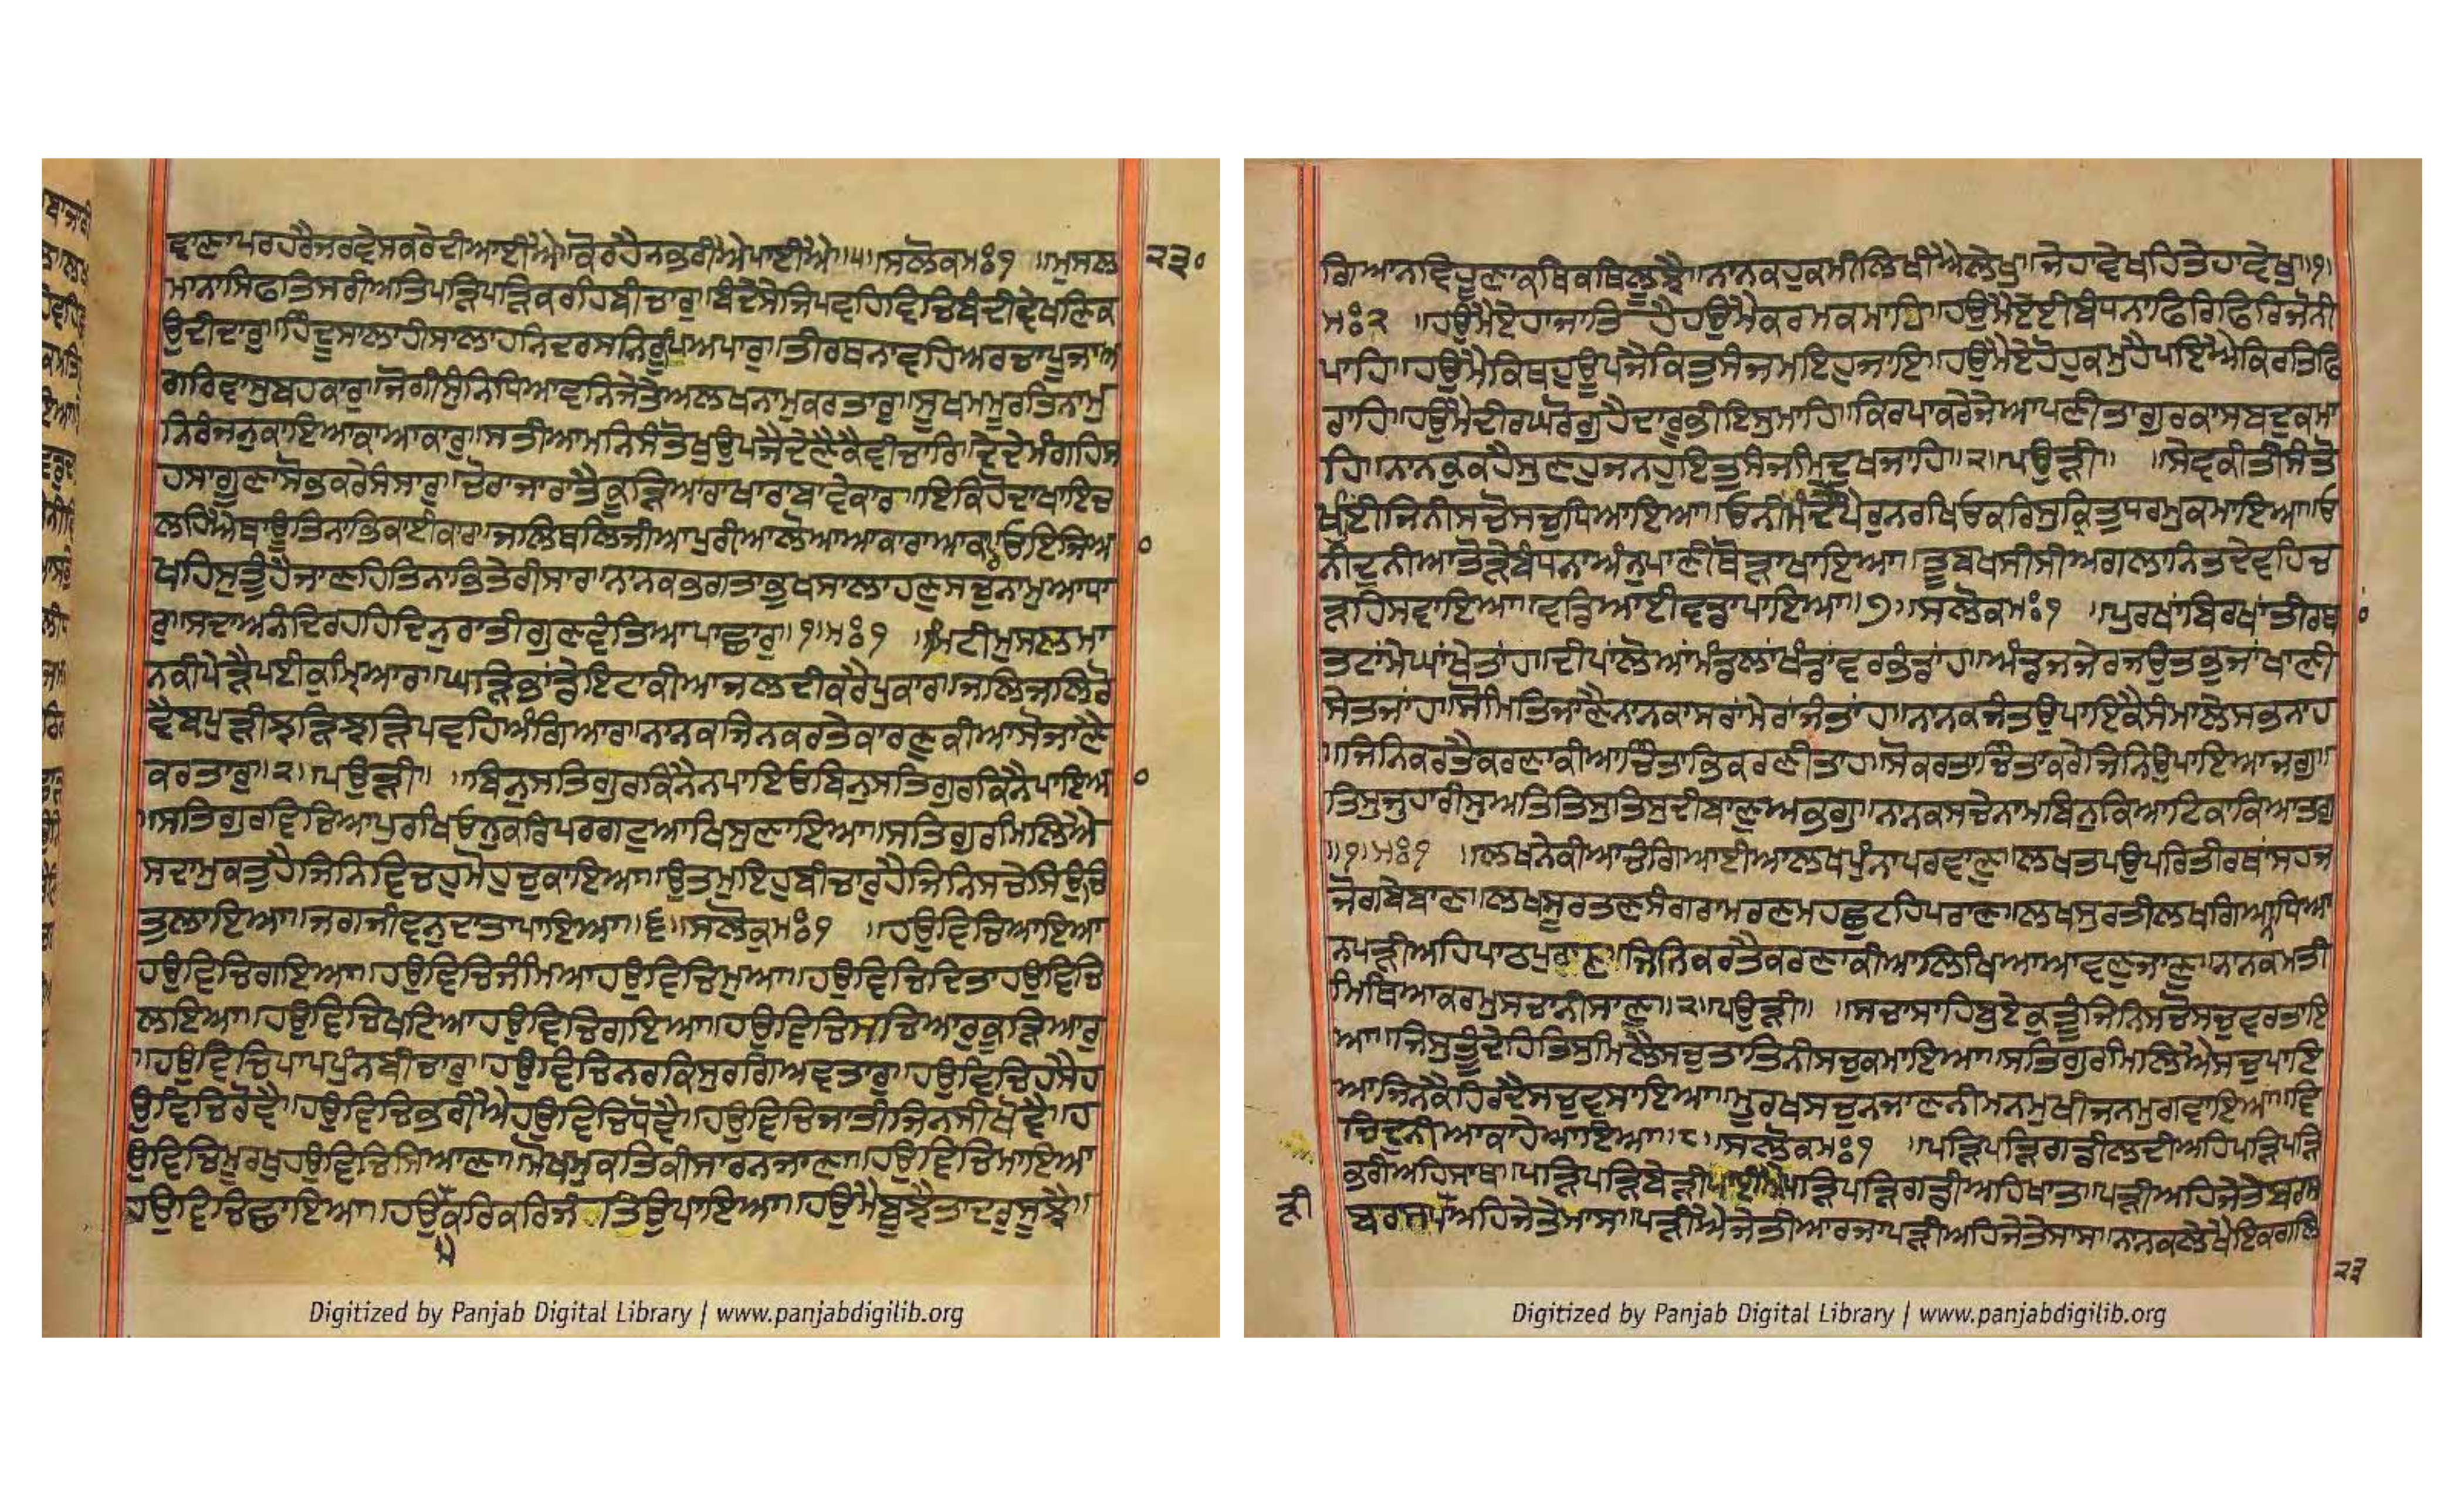 ਵਾਣਾਪਰਹਰੈਜਰਵੇਸਕਰੇਦੀਆਈਐ॥ਕੋਰਹੈਨਭਰੀਐਪਾਈਐ॥੫॥ਸਲੋਕਮਃ੧ ॥ਮੁਸਲ
੨੩੦
ਮਾਨਾਸਿਫਤਿਸਰੀਅਤਿਪੜਿਪੜਿਕਰਹਿਬੀਚਾਰੁ॥ਬੰਦੇਸੇਜਿਪਵਹਿਵਿਚਿਬੰਦੀਵੇਖਣਕਿ
ਉਦੀਦਾਰੁ॥ਹਿੰਦੂਸਾਲਾਹੀਸਾਲਾਹਨਿਦਰਸਨਿਰੂਪਿਅਪਾਰੁ॥ਤੀਰਥਨਾਵਹਿਅਰਚਾਪੂਜਾਅ
ਗਰਵਾਸੁਬਹਕਾਰੁ॥ਜੋਗੀਸੁੰਨਿਧਿਆਵਨਿਜੇਤੇਅਲਖਨਾਮੁਕਰਤਾਰੁ॥ਸੂਖਮਮੂਰਤਿਨਾਮੁ
ਨਿਰੰਜਨੁਕਾਇਆਕਾਆਕਾਰੁ॥ਸਤੀਆਮਨਿਸੰਤੋਖੁਉਪਜੈਦੇਣੈਕੈਵੀਚਾਰਿ॥ਦੇਦੇਮੰਗਹਿਸ
ਹਸਾਗੁਣਾਸੋਭਕਰੇਸੰਸਾਰੁ॥ਚੋਰਾਜਾਰਾਤੈਕੂੜਿਆਰਾਖਾਰਾਬਾਵੇਕਾਰ॥ਇਕਿਹੋਦਾਖਾਇਚ
ਲਹਿਐਥਾਊਤਿਨਾਭਿਕਾਈਕਾਰ॥ਜਲਿਥਲਿਜੀਆਪੁਰੀਆਲੋਆਆਕਾਰਾਆਕਾਰ॥ਓਇਜਿਅ
ਖਹਿਸੁਤੂੰਹੈਜਾਣਹਿਤਿਨਾਭਿਤੇਰੀਸਾਰ॥ਨਾਨਕਭਗਤਾਭੁਖਸਾਲਾਹਣੁਸਚੁਨਾਮੁਆਧਾ
ਰੁ॥ਸਦਾਅਨੰਦਿਰਹਹਿਦਿਨੁਰਾਤੀਗੁਣਵੰਤਿਆਪਾਛਾਰੁ॥੧॥ਮਃ੧ ॥ਮਿਟੀਮੁਸਲਮਾ
ਨਕੀਪੇੜੈਪਈਕੁਮਿ੍ਆਰ॥ਘੜਿਭਾਂਡੇਇਟਾਕੀਆਜਲਦੀਕਰੈਪੁਕਾਰ॥ਜਲਿਜਲਿਰੋ
ਵੈਬਪੁੜੀਝੜਿਝੜਿਪਵਹਿਅੰਗਿਆਰ॥ਨਾਨਕਜਿਨਕਰਤੇਕਾਰਣੁਕੀਆਸੋਜਾਣੈ
ਕਰਤਾਰੁ॥੨॥ਪਉੜੀ॥ ॥ਬਿਨੁਸਤਿਗੁਰਕਿਨੈਨਪਾਇਓਬਿਨੁਸਤਿਗੁਰਕਿਨੈਪਾਇਆ
॥ਸਤਿਗੁਰਵਿਚਿਆਪੁਰਖਿਓਨੁਕਰਿਪਰਗਟੁਆਖਿਸੁਣਾਇਆ॥ਸਤਿਗੁਰਮਿਲਿਐ
ਸਦਾਮੁਕਤੁਹੈਜਿਨਿਵਿਚਹੁਮੋਹੁਚੁਕਾਇਆ॥ਉਤਮੁਇਹੁਬੀਚਾਰੁਹੈਜਿਨਿਸਚੇਸਿਉਚਿ
ਤੁਲਾਇਆ॥ਜਗਜੀਵਨੁਦਾਤਾਪਾਇਆ॥੬॥ਸਲੋਕੁਮਃ੧ ॥ਹਉਵਿਚਿਆਇਆ
ਹਉਵਿਚਿਗਇਆ॥ਹਉਵਿਚਿਜੰਮਿਆਹਉਵਿਚਿਮੁਆ॥ਹਉਵਿਚਿਦਿਤਾਹਉਵਿਚਿ
ਲਇਆ॥ਹਉਵਿਚਿਖਟਿਆਹਉਵਿਚਿਗਇਆ॥ਹਉਵਿਚਿਸਚਿਆਰੁਕੂੜਿਆਰੁ
॥ਹਉਵਿਚਿਪਾਪਪੁੰਨਬੀਚਾਰੁ॥ਹਉਵਿਚਿਨਰਕਿਸੁਰਗਿਅਵਤਾਰੁ॥ਹਉਵਿਚਿਹਸੈਹ
ਉਵਿਚਿਰੋਵੈ॥ਹਉਵਿਚਿਭਰੀਐਹਉਵਿਚਿਧੋਵੈ॥ਹਉਵਿਚਿਜਾਤੀਜਿਨਸੀਖੋਵੈ॥ਹ
ਉਵਿਚਿਮੂਰਖੁਹਉਵਿਚਿਸਿਆਣਾ॥ਮੋਖਮੁਕਤਿਕੀਸਾਰਨਜਾਣਾ॥ਹਉਵਿਚਿਮਾਇਆ
ਹਉਵਿਚਿਛਾਇਆ॥ਹਉਕਰਿਕਰਿਜੰਤਉਪਾਇਆ॥ਹਉਮੈਬੂਝੈਤਾਦਰੁਸੂਝੈ॥
Digitized by Panjab Digital Library | www.panjabdigilib.org
ਗਿਆਨਵਿਹੂਣਾਕਥਿਕਥਿਲੂਝੈ॥ਨਾਨਕਹੁਕਮੀਲਿਖੀਐਲੇਖੁ॥ਜੇਹਾਵੇਖਹਿਤੇਹਾਵੇਖੁ॥੧॥
ਮਃ੨ ॥ਹਉਮੈਏਹਾਜਾਤਿ ਹੈਹਉਮੈਕਰਮਕਮਾਹਿ॥ਹਉਮੈਏਈਬੰਧਨਾਫਿਰਿਫਿਰਿਜੋਨੀ
ਪਾਹਿ॥ਹਉਮੈਕਿਥਹੁਊਪਜੈਕਿਤੁਸੰਜਮਇਹਜਾਇ॥ਹਉਮੈਏਹੋਹੁਕਮੁਹੈਪਇਐਕਿਰਤਿਫਿ
ਰਾਹਿ॥ਹਉਮੈਦੀਰਘਰੋਗੁਹੈਦਾਰੂਭੀਇਸੁਮਾਹਿ॥ਕਿਰਪਾਕਰੇਜੇਆਪਣੀਤਾਗੁਰਕਾਸਬਦੁਕਮਾ
ਹਿ॥ਨਾਨਕੁਕਹੈਸੁਣਹੁਜਨਹੁਇਤੁਸੰਜਮਿਦੁਖਜਾਹਿ॥੨॥ਪਉੜੀ॥ ॥ਸੇਵਕੀਤੀਸੰਤੋ
ਖੁਈਜਿਨੀਸਚੋਸਚੁਧਿਆਇਆ॥ਓਨੀਮੰਦੈਪੈਰੁਨਰਖਿਓਕਰਿਸੁਕ੍ਰਿਤੁਧਰਮੁਕਮਾਇਆ॥ਓ
ਨੀਦੁਨੀਆਤੋੜੇਬੰਧਨਾਅੰਨੁਪਾਣੀਥੋੜਾਖਾਇਆ॥ਤੂਬਖਸੀਸੀਅਗਲਾਨਿਤਦੇਵਹਿਚ
ੜਹਿਸਵਾਇਆ॥ਵਡਿਆਈਵਡਾਪਾਇਆ॥੭॥ਸਲੋਕਮਃ੧ ॥ਪੁਰਖਾਂਬਿਰਖਾਂਤੀਰਥ
ਤਟਾਂਮੇਘਾਂਖੇਤਾਂਹ॥ਦੀਪਾਂਲੋਆਂਮੰਡਲਾਂਖੰਡਾਂਵਰਭੰਡਾਂਹ॥ਅੰਡਜਜੇਰਜਉਤਭੁਜਾਂਖਾਣੀ
ਸੇਤਜਾਂਹ॥ਸੋਮਿਤਿਜਾਣੈਨਾਨਕਾਸਰਾਂਮੇਰਾਂਜੰਤਾਂਹ॥ਨਾਨਕਜੰਤਉਪਾਇਕੈਸੰਮਾਲੇਸਭਨਾਹ
॥ਜਿਨਿਕਰਤੈਕਰਣਾਕੀਆਚਿੰਤਾਭਿਕਰਣੀਤਾਹ॥ਸੋਕਰਤਾਚਿੰਤਾਕਰੇਜਿਨਿਉਪਾਇਆਜਗੁ॥
ਤਿਸੁਜੁਹਾਰੀਸੁਅਸਤਿਤਿਸੁਤਿਸੁਦੀਬਾਣੁਅਭਗੁ॥ਨਾਨਕਸਚੇਨਾਮਬਿਨੁਕਿਆਟਿਕਾਕਿਆਤਗੁ
॥੧॥ਮਃ੧ ॥ਲਖਨੇਕੀਆਚੰਗਿਆਈਆਲਖਪੁੰਨਾਪਰਵਾਣੁ॥ਲਖਤਪਉਪਰਿਤੀਰਥਾਂਸਹਜ
ਜੋਗਬੇਬਾਣ॥ਲਖਸੂਰਤਣਸੰਗਰਾਮਰਣਮਹਛੁਟਹਿਪਰਾਣ॥ਲਖਸੁਰਤੀਲਖਗਿਆਧਿਆ
ਨਪੜੀਅਹਿਪਾਠਪੁਰਾਣ॥ਜਿਨਿਕਰਤੈਕਰਣਾਕੀਆਲਿਖਿਆਆਵਣੁਜਾਣੁ॥ਨਾਨਕਮਤੀ
ਮਿਥਿਆਕਰਮੁਸਚਾਨੀਸਾਣੁ॥੨॥ਪਉੜੀ॥ ॥ਸਚਾਸਾਹਿਬੁਏਕੁਤੂੰਜਿਨਿਸਚੋਸਚੁਵਰਤਾਇ
ਆ॥ਜਿਸੁਤੂੰਦੇਹਿਤਿਸੁਮਿਲੈਸਚੁਤਾਤਿਨੀਸਚੁਕਮਾਇਆ॥ਸਤਿਗੁਰਮਿਲਿਐਸਚੁਪਾਇ
ਆਜਿਨਕੈਹਿਰਦੈਸਚੁਵਸਾਇਆ॥ਮੂਰਖਸਚੁਨਜਾਣਨੀਮਨਮੁਖੀਜਨਮੁਗਵਾਇਆ॥ਵਿ
ਚਿਦੁਨੀਆਕਾਹੇਆਇਆ॥੮॥ਸਲੋਕਮਃ੧ ॥ਪੜਿਪੜਿਗਡੀਲਦੀਅਹਿਪੜਿਪੜਿ
ਭਰੀਅਹਿਸਾਥ॥ਪੜਿਪੜਿਬੇੜੀਪਾਈਐਪੜਿਪੜਿਗਡੀਅਹਿਖਾਤ॥ਪੜੀਅਹਿਜੇਤੇਬਰਸ
ੜੀ
ਬਰਸਪੀਅਹਿਜੇਤੇਮਾਸ॥ਪੜੀਐਜੇਤੀਆਰਜਾਪੜੀਅਹਿਜੇਤੇਸਾਸ॥ਨਾਨਕਲੇਖੈਇਕਗਲਿ
੨੩
Digitized by Panjab Digital Library | www.panjabdigilib.org